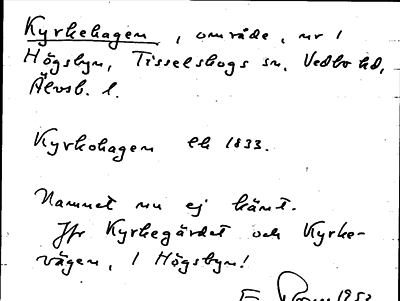 Kyrkehagen, område, nr 1
Högsbyn, Tisselskogs sn, Vedbo hd,
Älvsb. l.
Kyrkohagen lh 1833.
Namnet nu ej känt.
Jfr Kyrkegärdet och Kyrke-
vägen, 1 Högsbyn!